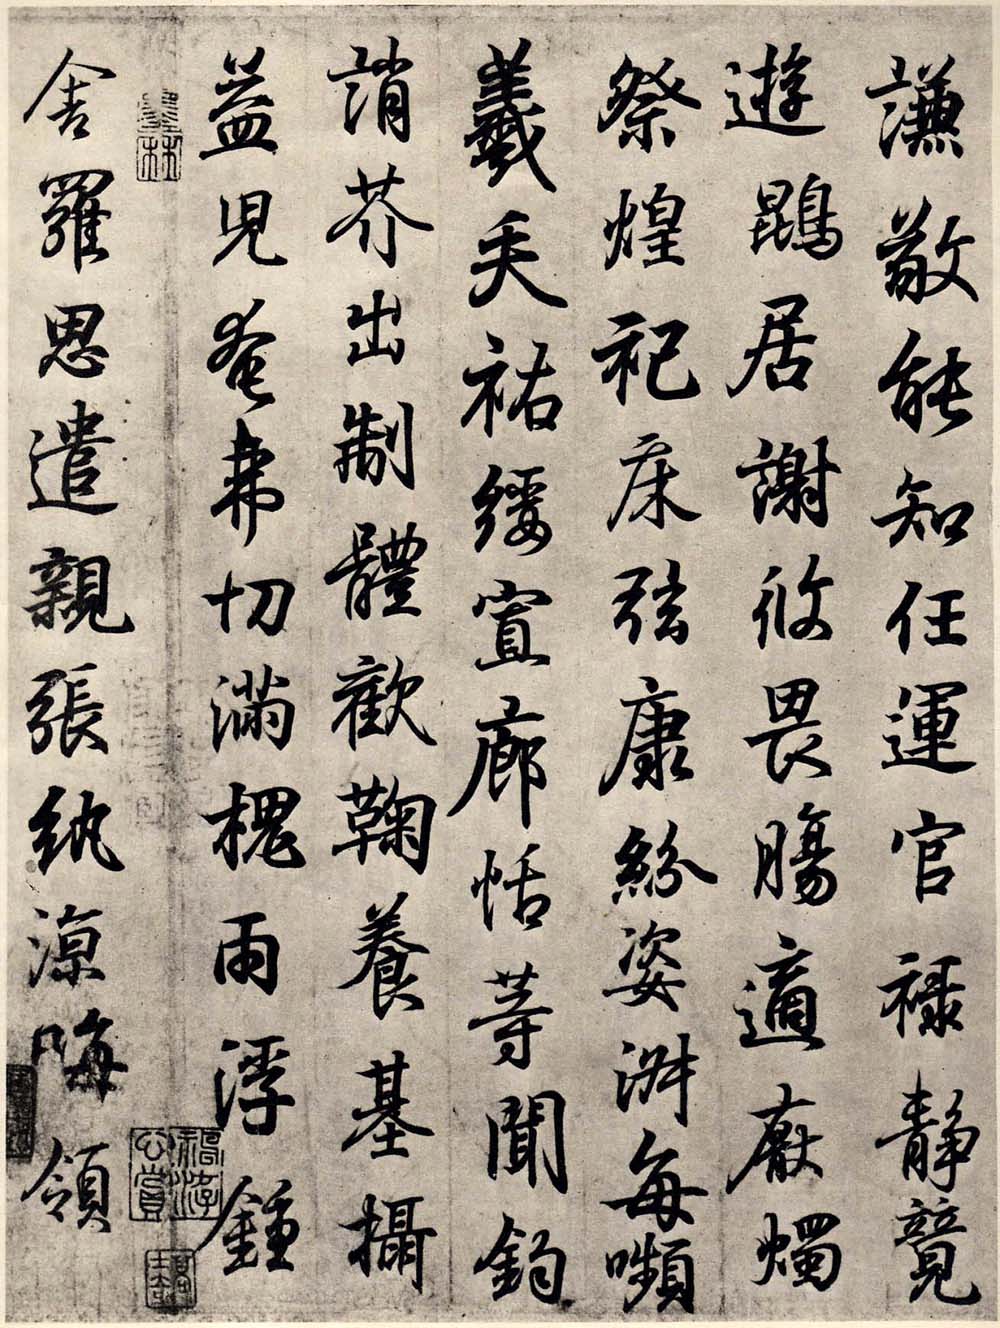 謙敬能知任運官祿靜競
遊鵾居謝攸畏腸適厭燭
祭煌祀床弦康紛姿淵每嚬
羲矢祐綏宣廊恬等聞鈞
誚芥出制體歡鞠養基攝
益兒奄弗切滿槐雨浮鍾
舍羅思遣親張紈涼晦領
墨林